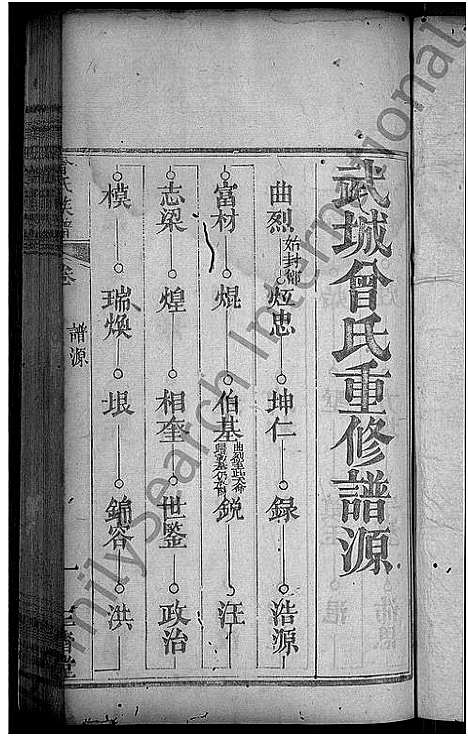 武城曾氏重修譜源
曲烈 始封鄫 炡忠 坤仁 録 浩源
富材 焜 伯基 鋭 汪
志梁 煌 相奎 世鑒 政治
模 瑞煥 垠 錦容 洪
譜源
一
FamilySearch International